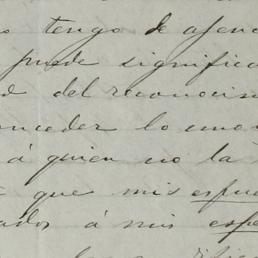 s tengo de agenc
puede significa
del reconocim
onceder lo uno
á quien no la
que mis esfue
ados á mis espe